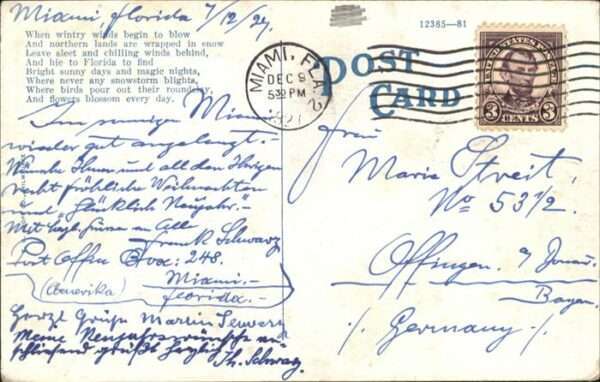 Miami, florida 7/12/27.
12365—81
When wintry winds begin to blow
And northern lands are wrapped in snow
Leave sleet and chilling winds behind,
And hie to Florida to find
Bright sunny days and magic nights,
Where never any snowstorm blights,
Where birds pour out their roundelay
And flowers blossom every day.
MIAMI, FLA. 2
DEC 9
5 30 PM
1927
POST CARD
UNITED STATES POSTAGE
3 CENTS 3
Im sonnigen Miami
wieder gut angelangt.-
Wünsche Ihnen und all den Ihrigen
recht fröhliche Weihnachten
und "Glücklich Neujahr".-
Mit Grüsse an All
Frank Schwarz
Post Office Box: 248.
(Amerika) Miami.-
florida.-
Herzl Grüße Martin
Meine Neujahrswünsche
schließend grüßt herzlich Th. Schwarz.
Frau
Maria Streit,
No 53 1/2.
Offingen a/ Donau.
Bayern.
./. Germany ./.